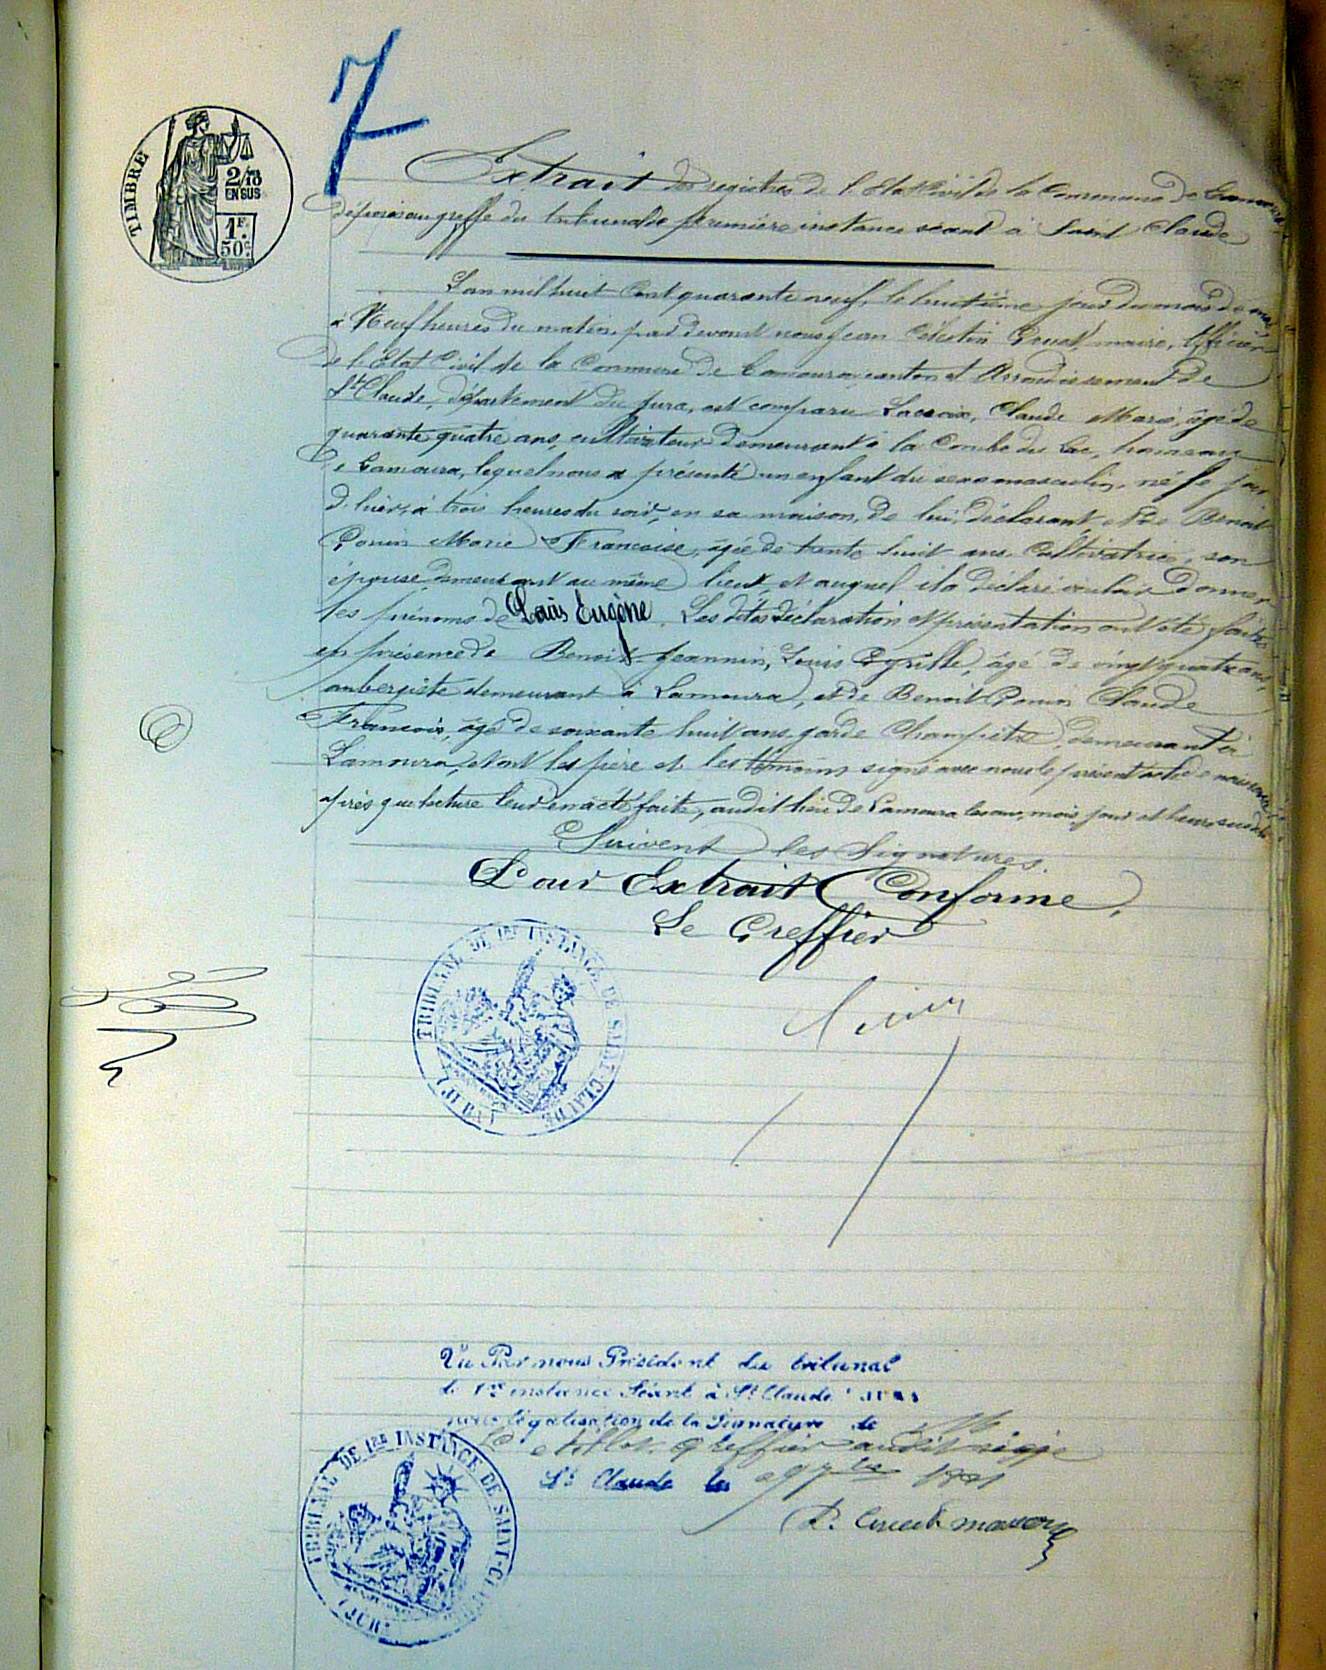 7
TIMBRE
2/10
EN SUS
1F.
50c.
Extrait des registres de l'Etat Civil de la Commune de
déposés au greffe du tribunal de première instance séant à Saint Claude
L'an mil huit cent quarante neuf, le huitième jour du mois de mai
à Neuf heures du matin, par devant nous Jean Célestin Grust maire, Officier
de l'Etat Civil de la Commune de Lamoura, canton et Arrondissement de
St Claude, département du Jura, est comparu Lacroix, Claude Marie, âgé de
quarante quatre ans, cultivateur demeurant à la Combe du Lac, hameau
de Lamoura, lequel nous a présenté un enfant du sexe masculin, né le jour
d'hier, à trois heures du soir, en sa maison, de lui, déclarant et de Benoit
Gonin Marie Francoise, âgée de trente huit ans, Cultivatrice, son
épouse demeurant au même lieu, et auquel il a déclaré vouloir donner
les prénoms de Louis Eugène. Les dites déclaration et présentation ont été faites
en présence de Benoit Jeannin, Louis Cyrille, âgé de vingt quatre ans,
aubergiste demeurant à Lamoura, et de Benoit Gonin Claude
Francois, âgé de soixante huit ans, garde Champêtre, demeurant à
Lamoura, et ont les père et les témoins signé avec nous le présent acte de naissance
après que lecture leur en a été faite, audit lieu de Lamoura les an, mois jour et heure susdits
Suivent les Signatures
Pour Extrait Conforme,
Le Greffier
TRIBUNAL DE 1RE INSTANCE DE SAINT-CLAUDE
(JURA)
Vu Par nous Président du tribunal
de 1re instance Séant à St Claude JURA
pour légalisation de la Signature de
greffier audit siège
St Claude le
TRIBUNAL DE 1RE INSTANCE DE SAINT-CLAUDE
(JURA)